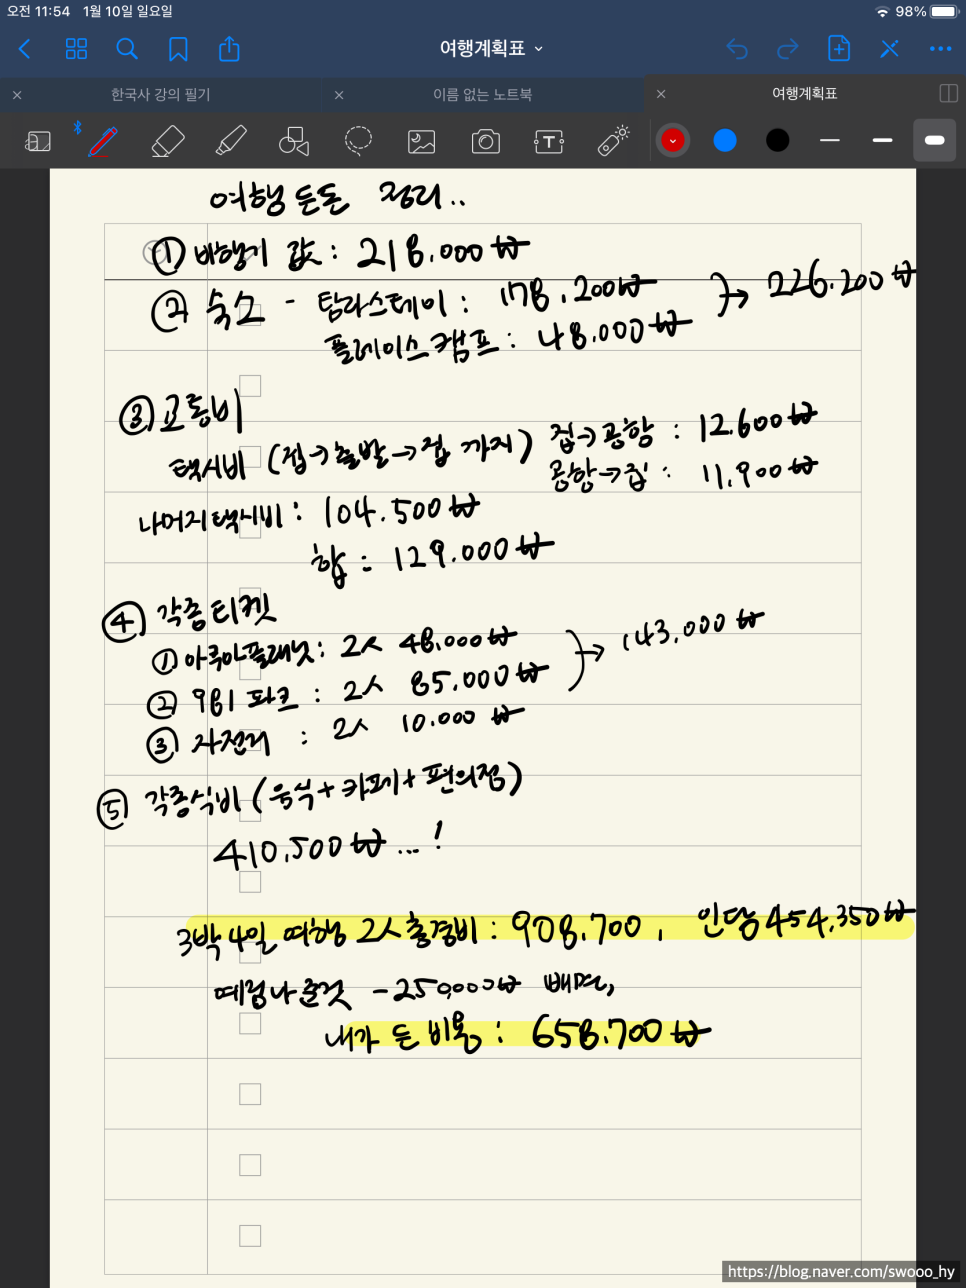 오전 11:54 1월 10일 일요일 98%
여행계획표
한국사 강의 필기 이름 없는 노트북 여행계획표
여행 든돈 정리..
① 비행기 값 : 218.000₩
② 숙소 - 탐라스테이 : 178.200₩ → 226.200₩
플레이스캠프 : 48.000₩
③ 교통비
택시비 (집→출발→집 까지) 집→공항 : 12.600₩
공항→집 : 11.900₩
나머지택시비 : 104.500₩
합 : 129.000₩
④ 각종티켓
① 아쿠아플래닛 : 2人 48.000₩ → 143.000₩
② 981 파크 : 2人 85.000₩
③ 자전거 : 2人 10.000₩
⑤ 각종식비 (음식+카페+편의점)
410.500₩...!
3박4일 여행 2人총경비 : 908.700, 인당 454.350₩
준것 -250,000₩ 빼면,
내가 든 비용 : 658.700₩
https://blog.naver.com/swooo_hy